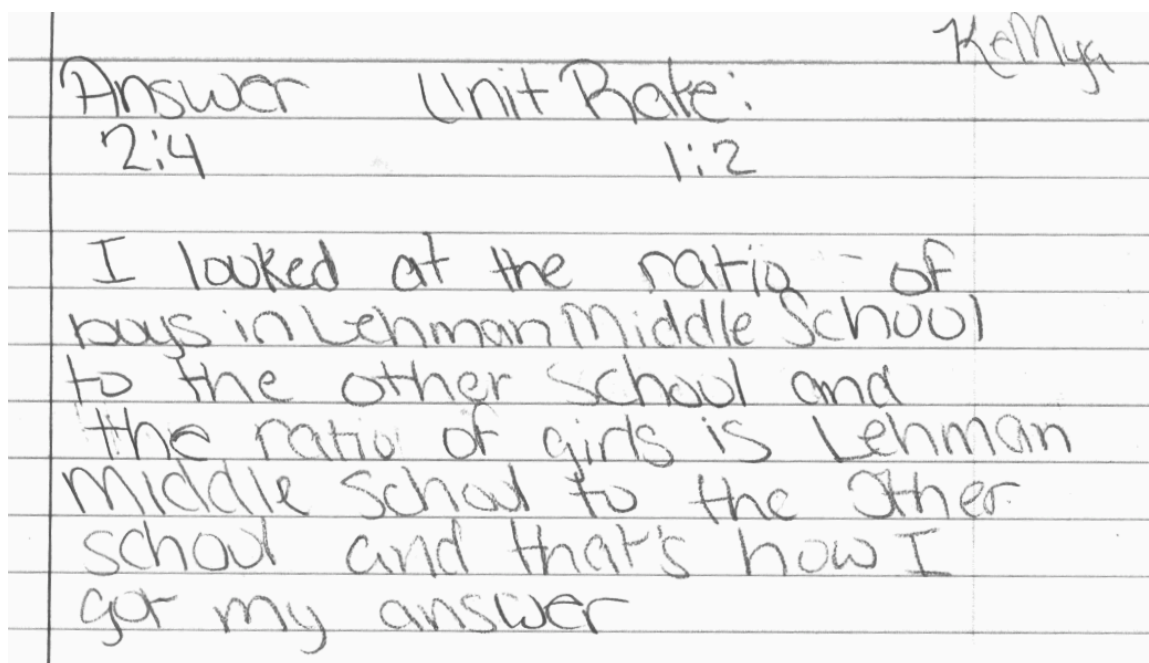 KeMya
Answer Unit Rate:
2:4 1:2
I looked at the ratio of
boys in Lehman Middle School
to the other school and
the ratio of girls is Lehman
Middle School to the other
school and that's how I
got my answer